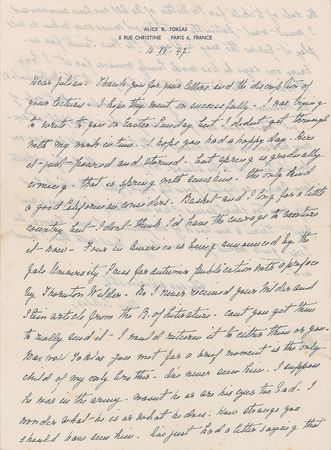 ALICE B. TOKLAS
5 RUE CHRISTINE PARIS 6, FRANCE
12 IV 47.
Dear Julian - Thank you for your letters and the description of
your lecture - I hope they went on successfully - I was trying
to write to you on Easter Sunday but I didnt get through
with my work in time. I hope you had a happy day. Here
it just poured and stormed - but spring is gradually
coming - that is spring with sunshine - the only kind
a good Californian considers. Basket and I long for a little
country but I dont think I'd have the courage to
it now - Four in America is being announced by the
Yale University Press for autumn publication with a preface
by Thornton Wilder. No I never received your Wilder and
Stein article from the R. of Literature - cant you get them
to really send it - I would return it to either them or you.
you met for a brief moment is the only
child of my only brother. Ive never seen him. I suppose
he was in the army - wasnt he or are his eyes too bad - I
wonder what he is or what he does. How strange you
should have seen him. Ive just had a letter saying that